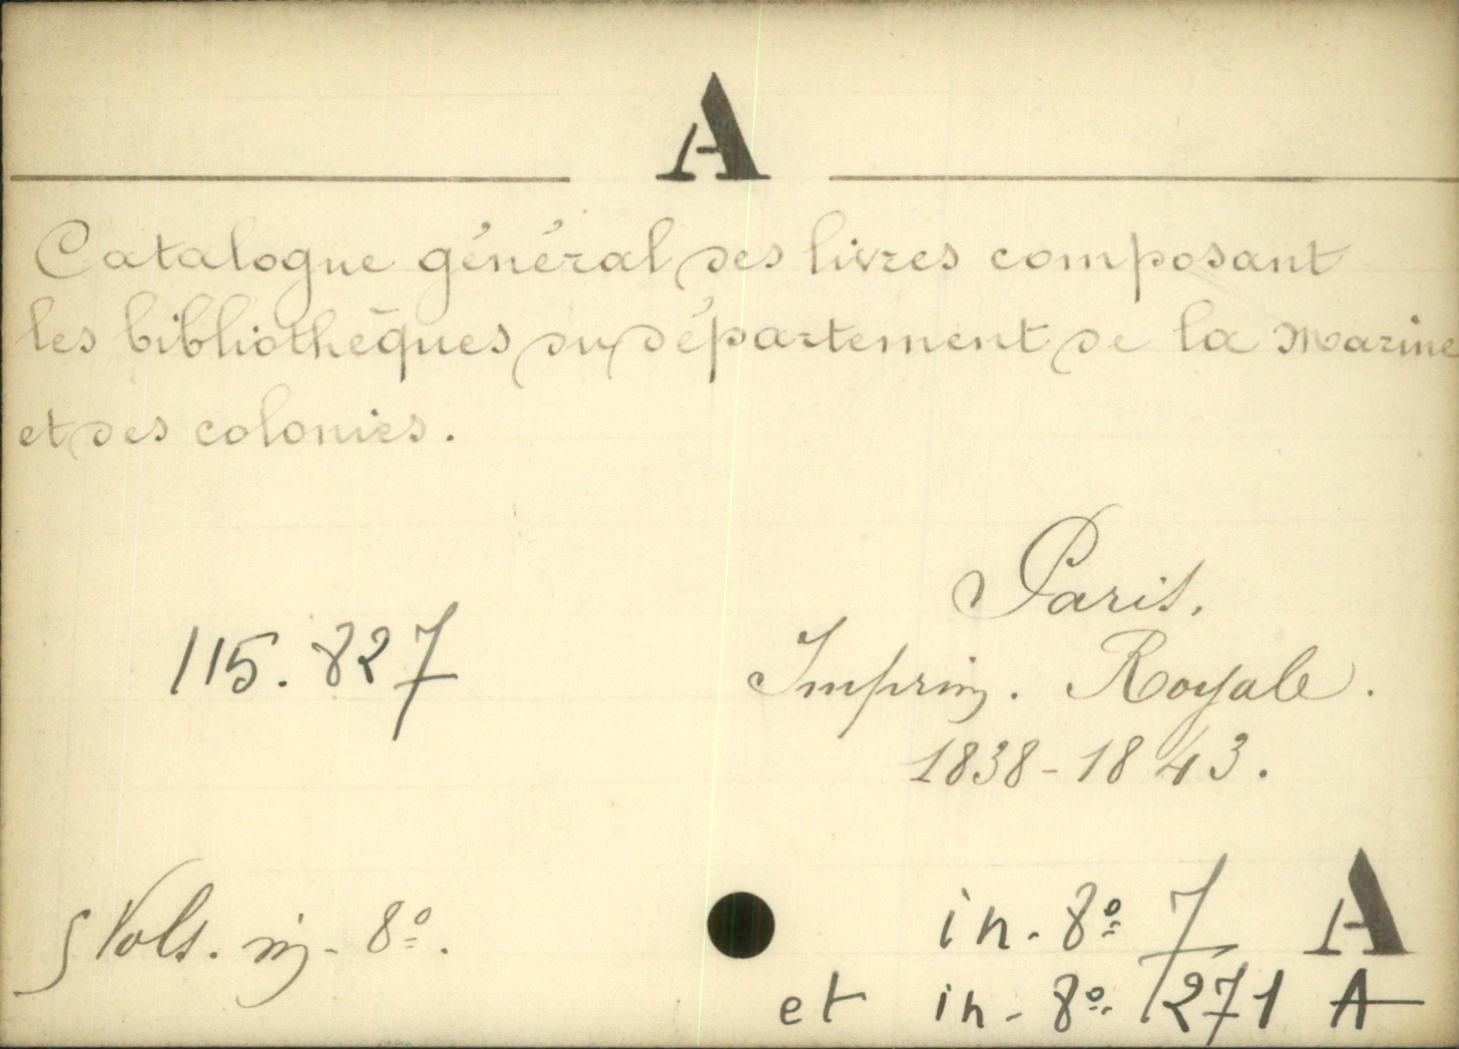 A
Catalogue général des livres composant
les bibliothèques du département de la Marine
et des colonies.
Paris.
115.827
Imprim. Royale.
1838-1843.
5 Vols. in-8º.
in-8º 7 A
et in-8º 1271 A